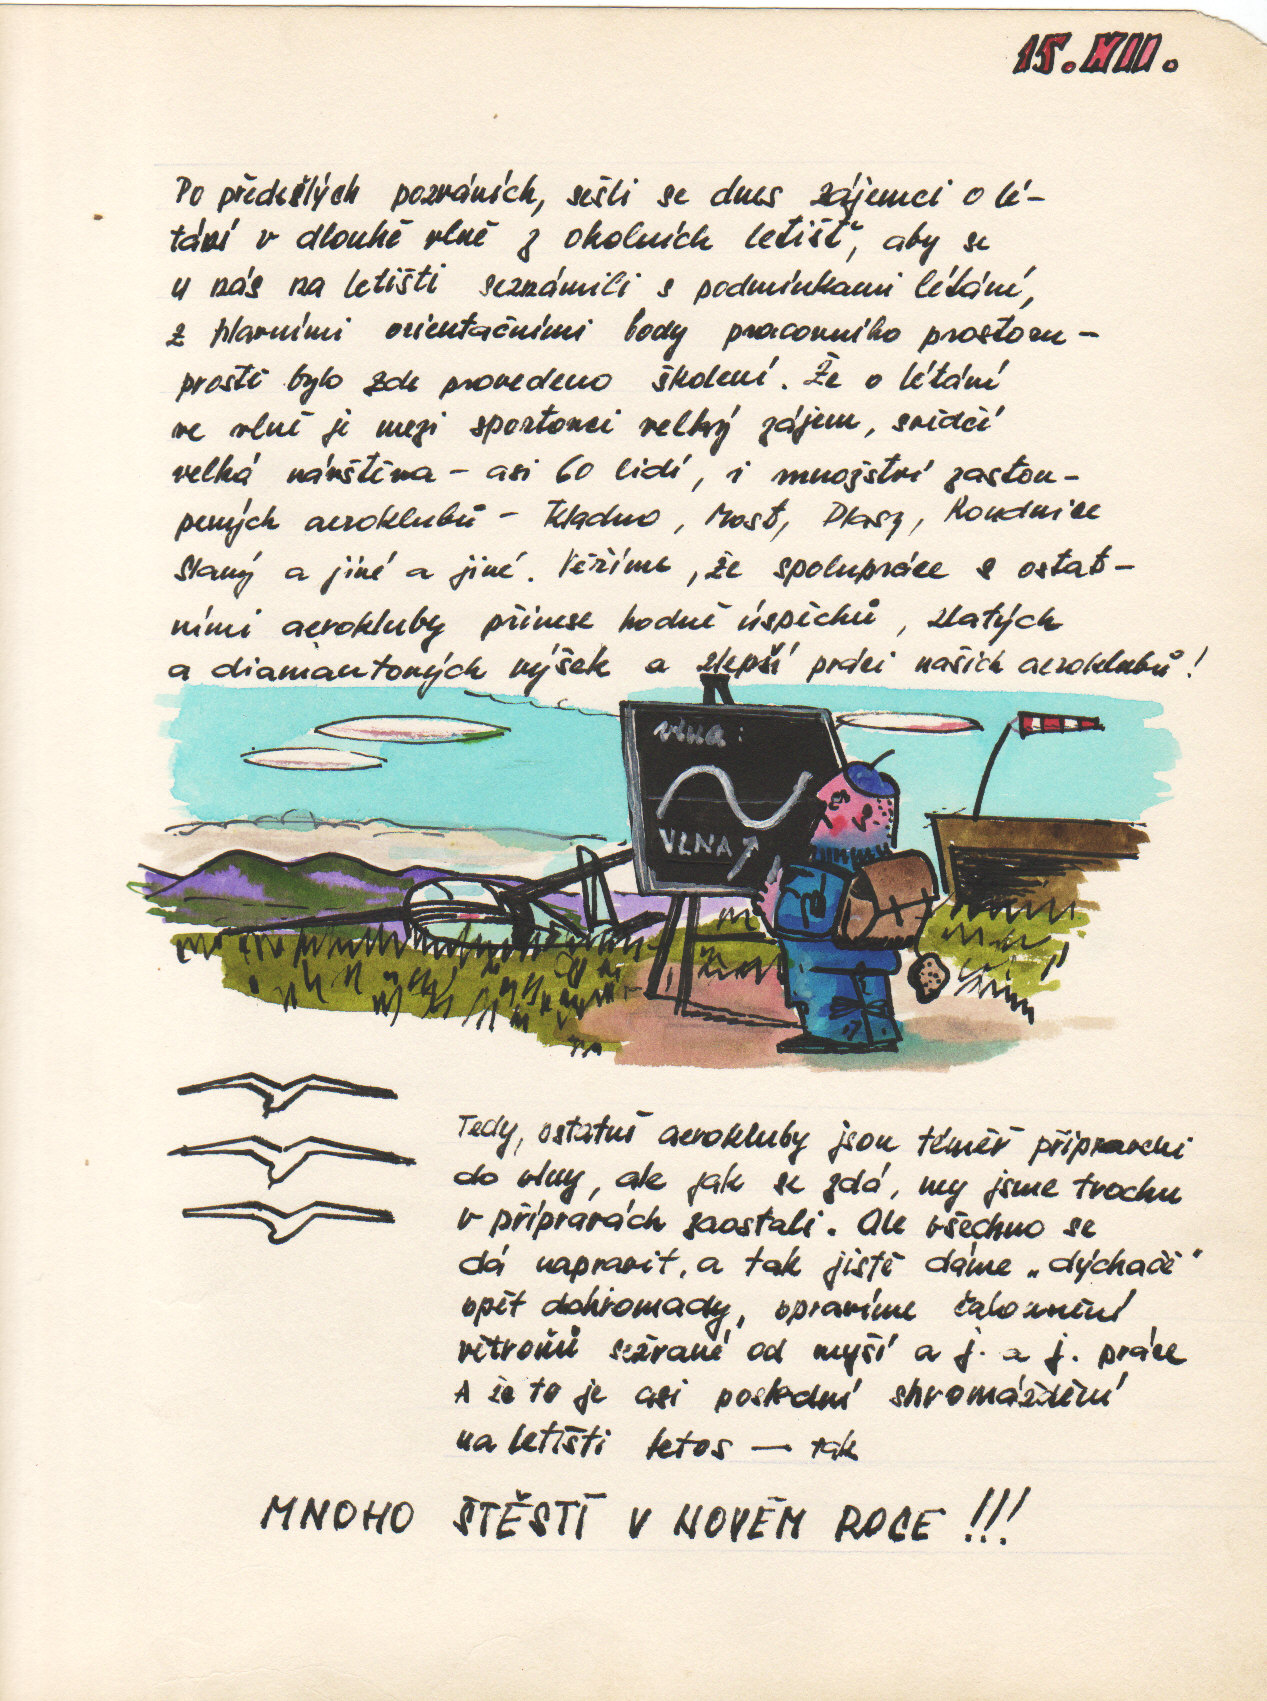 15.XII.
Po předešlých pozváních, sešli se dnes zájemci o lé-
tání v dlouhé vlně z okolních letišť, aby se
u nás na letišti seznámili s podmínkami létání,
z hlavními orientačními body pracovního prostoru -
prostě bylo zde provedeno školení. Že o létání
ve vlně je mezi sportovci velký zájem, svědčí
velká návštěva - asi 60 lidí, i množství zastou-
pených aeroklubů - Kladno, Most, Plasy, Roudnice
Slaný a jiné a jiné. Věříme, že spolupráce s ostat-
ními aerokluby přinese hodně úspěchů, zlatých
a diamantových výšek a zlepší práci našich aeroklubů!
vlna:
VLNA
Tedy, ostatní aerokluby jsou téměř připraveni
do vlny, ale jak se zdá, my jsme trochu
v přípravách zaostali. Ale všechno se
dá napravit, a tak jistě dáme „dýchače"
opět dohromady, opravíme čalounění
větroňů sežrané od myší a j. a j. práce
A že to je asi poslední shromáždění
na letišti letos — tak
MNOHO ŠTĚSTÍ V NOVÉM ROCE !!!